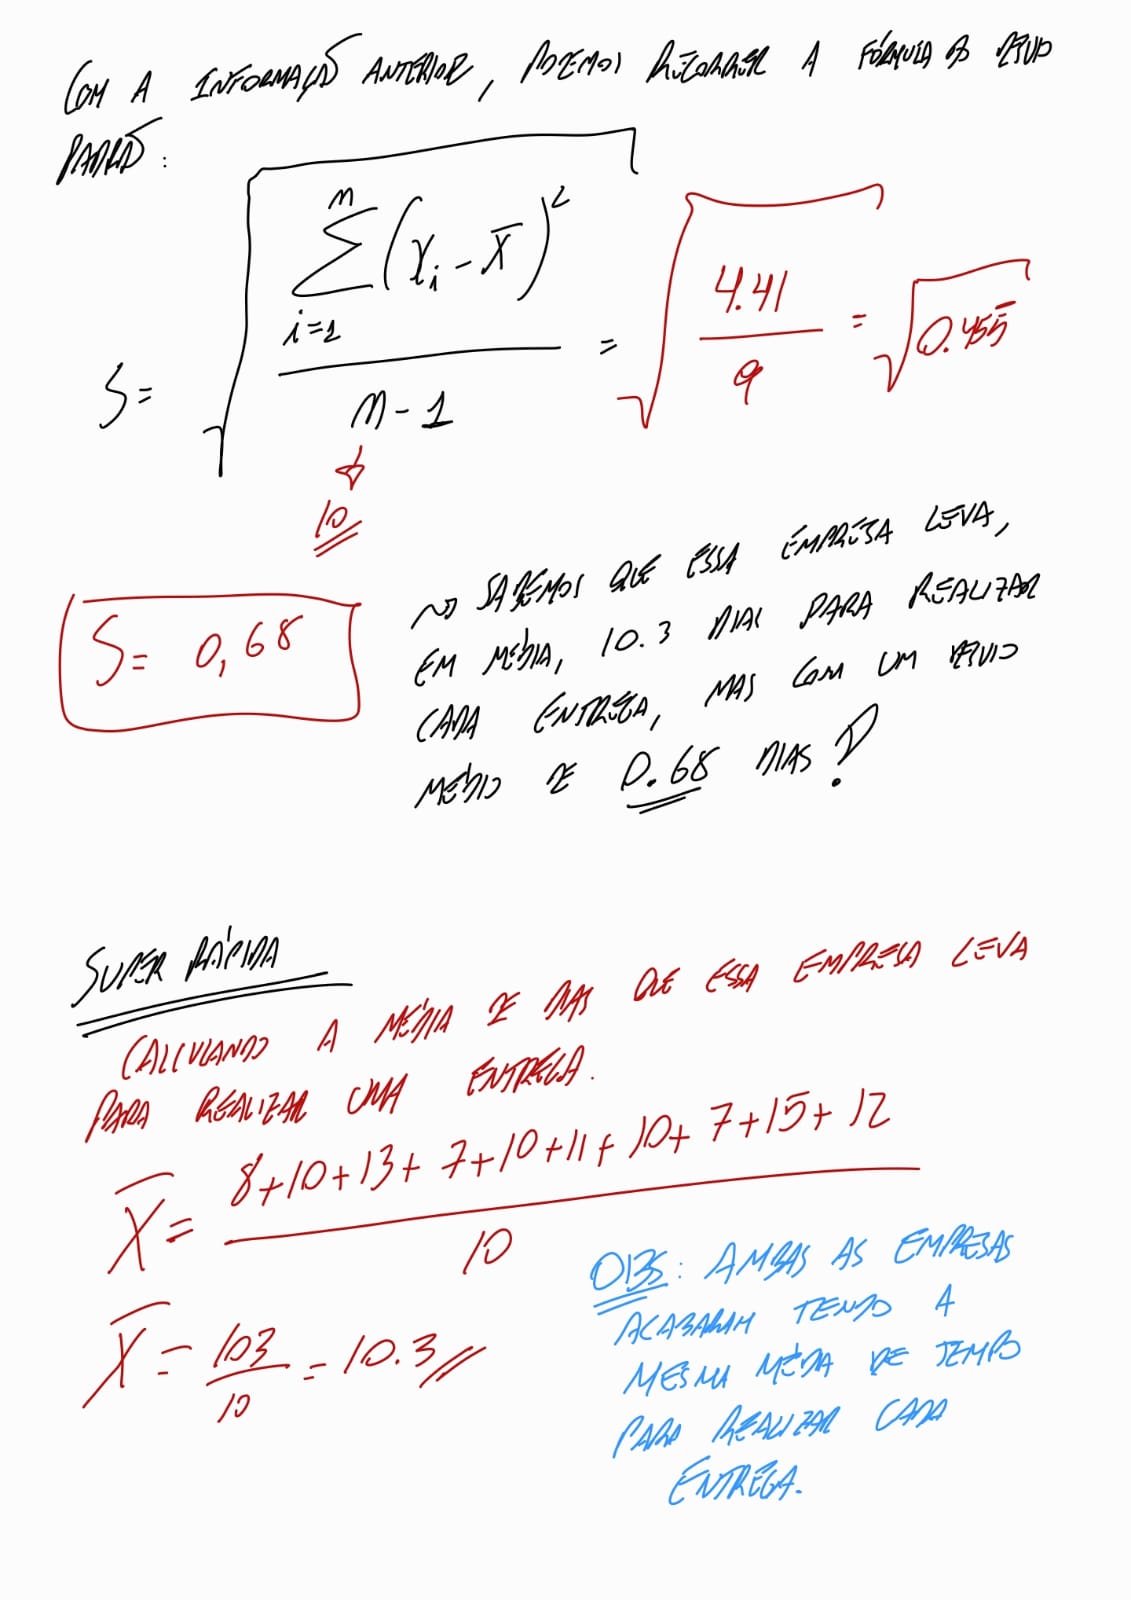 COM A INFORMAÇÃO ANTERIOR, PODEMOS RECORRER A FÓRMULA DO DESVIO
PADRÃO:
S = √( Σ_{i=1}^{n} (x_i - x̄)² / n - 1 ) = √( 4.41 / 9 ) = √0.455
10
S = 0,68
SABEMOS QUE ESSA EMPRESA LEVA,
EM MÉDIA, 10.3 DIAS PARA REALIZAR
CADA ENTREGA, MAS COM UM DESVIO
MÉDIO DE 0.68 DIAS
SUPER RÁPIDA
CALCULANDO A MÉDIA DE DIAS QUE ESSA EMPRESA LEVA
PARA REALIZAR UMA ENTREGA.
x̄ = 8+10+13+7+10+11+10+7+15+12 / 10
x̄ = 103 / 10 = 10.3
OBS: AMBAS AS EMPRESAS
ACABARAM TENDO A
MESMA MÉDIA DE TEMPO
PARA REALIZAR CADA
ENTREGA.